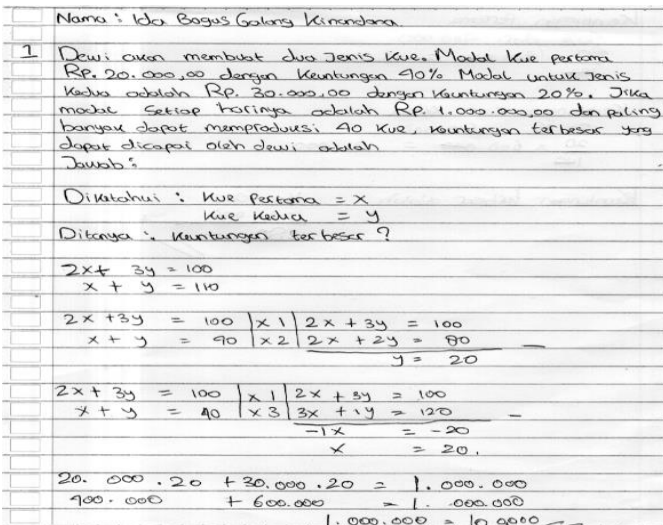 Nama : Ida Bagus Galang Kinandana
1 Dewi akan membuat dua Jenis Kue. Modal Kue pertama
Rp. 20.000,00 dengan Keuntungan 40% Modal untuk Jenis
Kedua adalah Rp. 30.000,00 dengan Keuntungan 20%. Jika
modal Setiap harinya adalah Rp. 1.000.000,00 dan paling
banyak dapat memproduksi 40 Kue, keuntungan terbesar yang
dapat dicapai oleh dewi adalah
Jawab :
Diketahui : Kue Pertama = x
Kue Kedua = y
Ditanya : keuntungan terbesar ?
2x + 3y = 100
x + y = 110
2x + 3y = 100 | x 1 | 2x + 3y = 100
x + y = 40 | x 2 | 2x + 2y = 80 _
y = 20
2x + 3y = 100 | x 1 | 2x + 3y = 100
x + y = 40 | x 3 | 3x + 1y = 120 _
-1x = -20
x = 20.
20.000.20 + 30.000.20 = 1.000.000
400.000 + 600.000 = 1.000.000
1.000.000 =